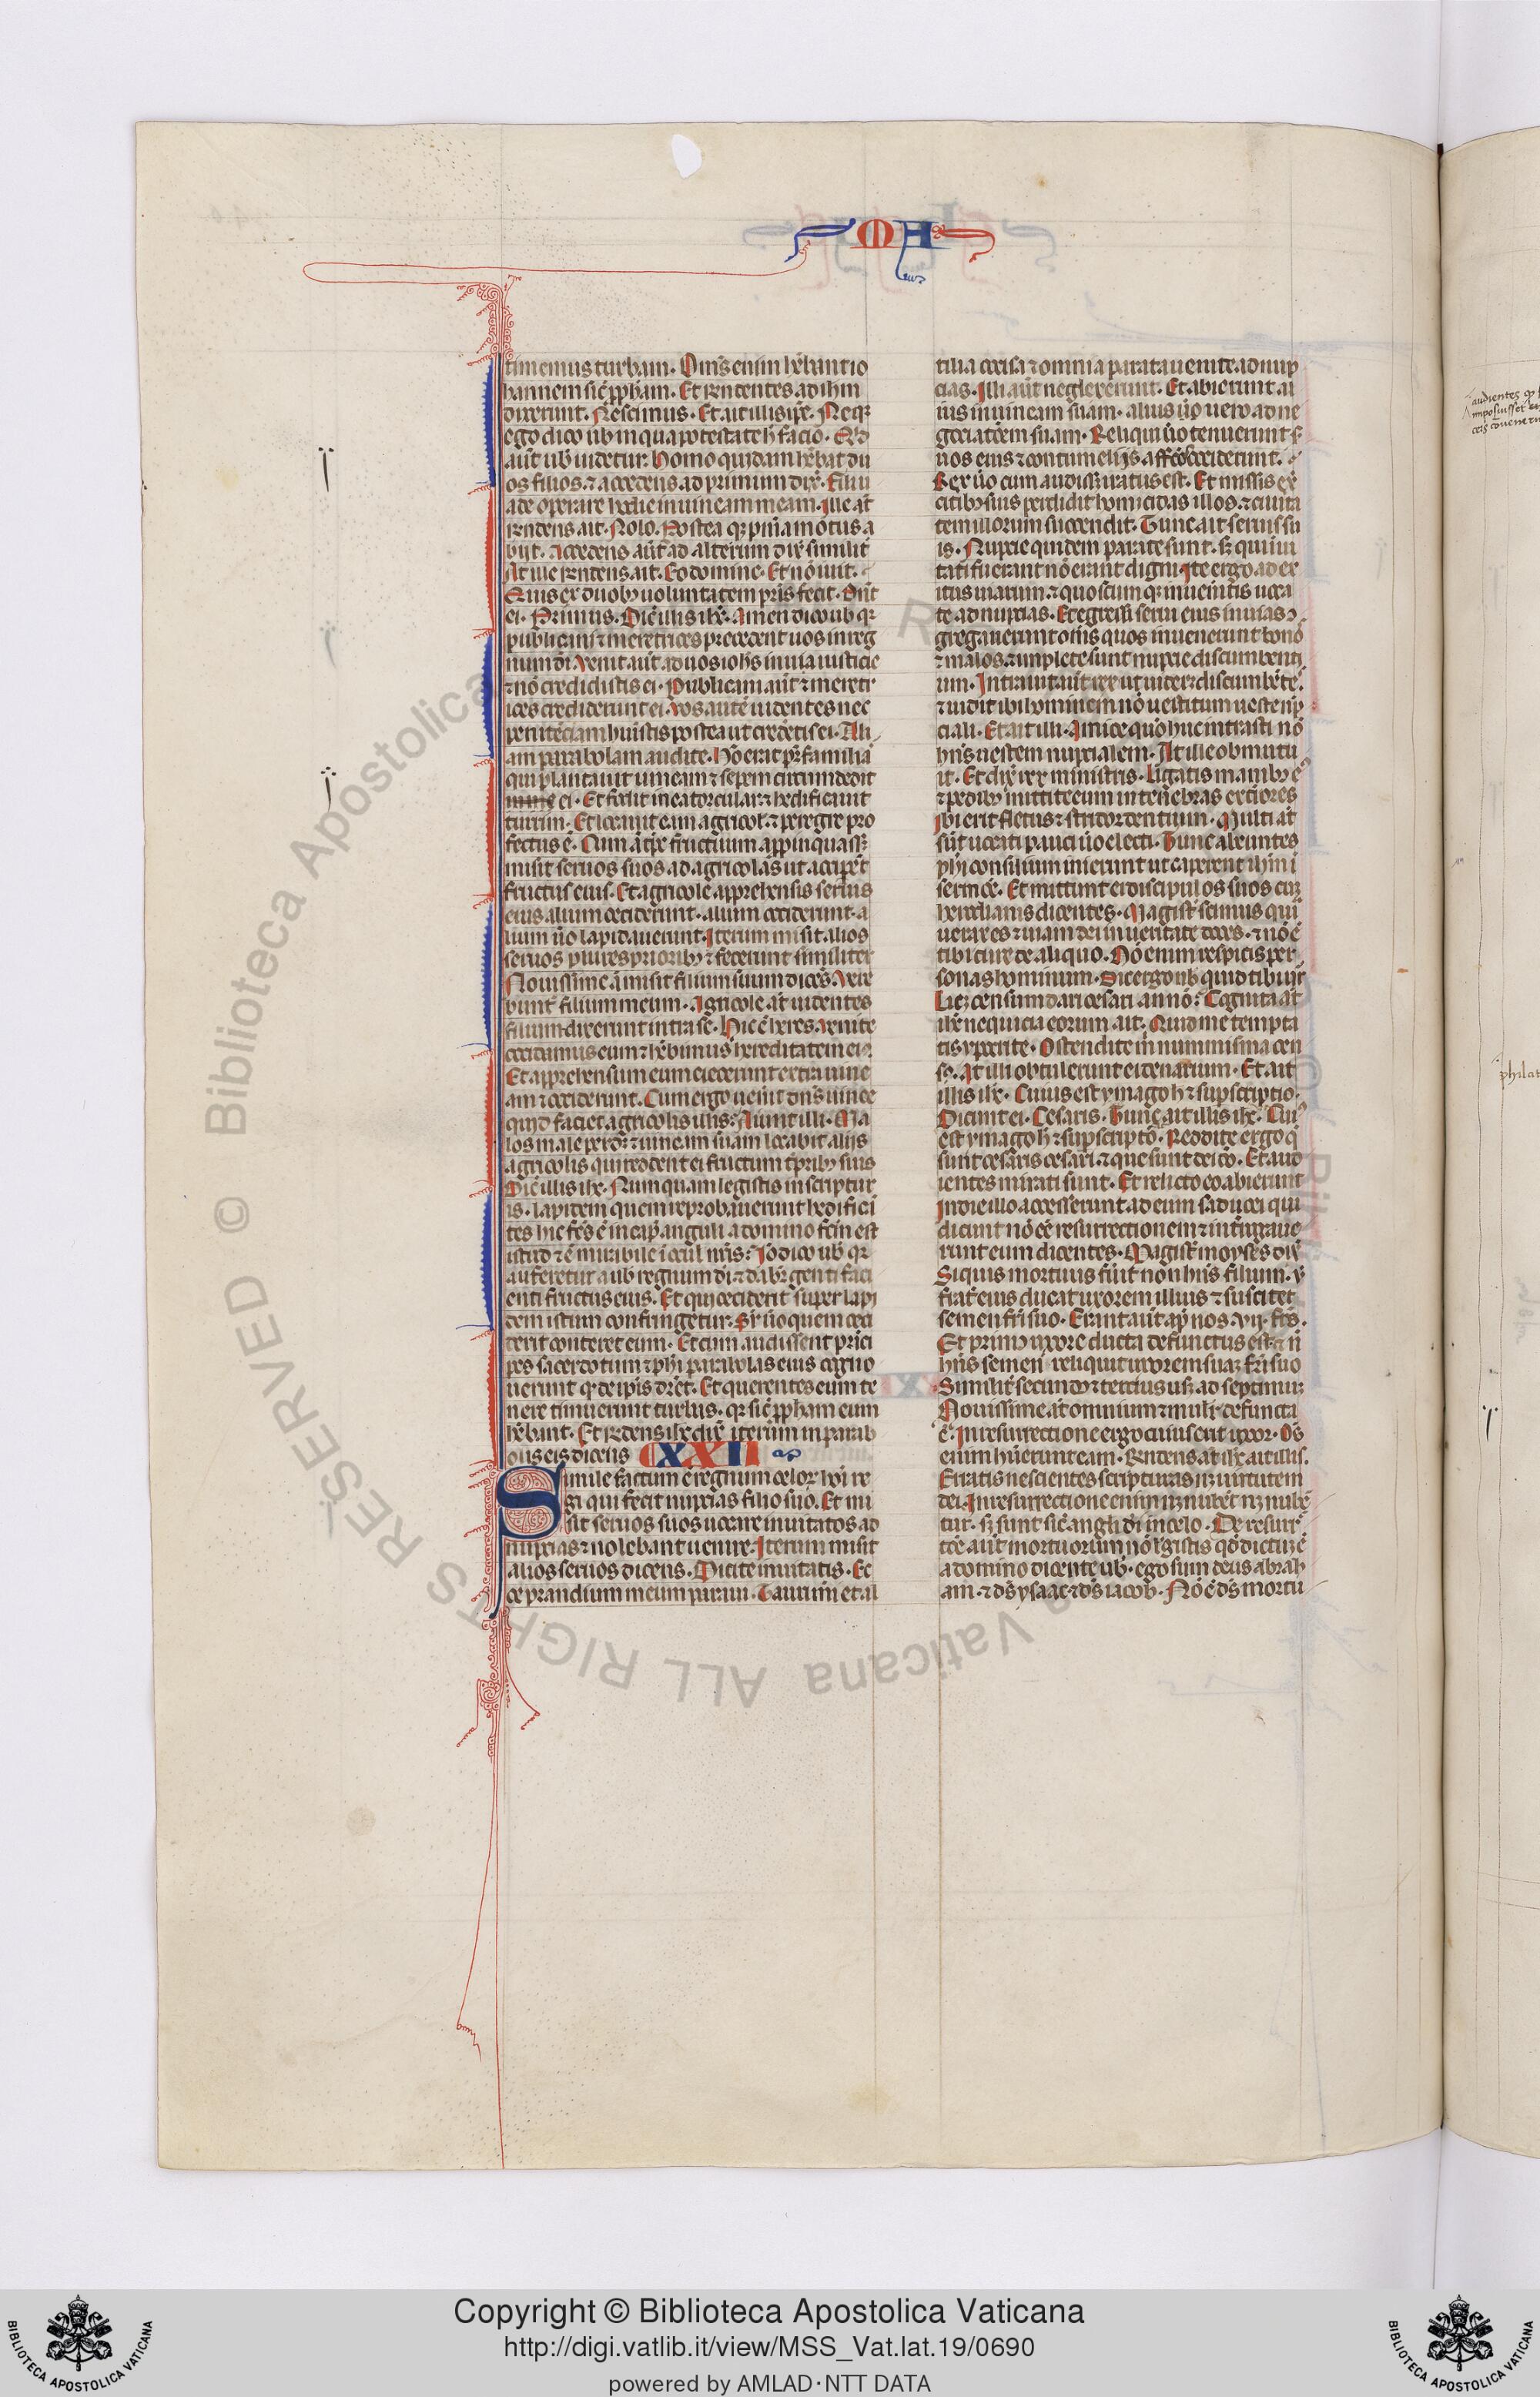 MA
timemus turbam. Om̄s enim hēbant io
hannem sic̄ ꝓph̄am. Et r̄ndentes ad ih̄m
dixerunt. Nescimus. Et ait illis ip̄e. Neqꝫ
ego dico uob̄ in qua potestate h̄ facio. Q̇d
aut̄ uob̄ uidetur. Homo quidam hēbat du
os filios. ⁊ accedens ad primum dix̄. Fili
uade operare hodie in uineam meam. Ille at̄
r̄ndens ait. Nolo. Postea aut̄ pn̄ia motus a
bijt. Accedens aut̄ ad alterum dix̄ similit̄
At ille r̄ndens. ait. Eo domine. Et nō iuit.
Quis ex duobꝫ uoluntatem pr̄is fecit. Dn̄t
ei. Primus. Dic̄ illis ih̄c. Amen dico uob̄ qꝛ
publicani ⁊ meretrices precedent uos in reg
num dī. Venit aut̄ ad uos ioh̄s in uia iusticie
⁊ nō credidistis ei. Publicani aut̄ ⁊ meretr
ices crediderunt ei. Vos autē uidentes nec
penitēciam huistis postea ut credētis ei. Ali
am parabolam audite. Hō erat pr̄familia
qui plantauit uineam ⁊ sepem circumdedit
ei. Et fodit in ea torcular ⁊ hedificauit
turrim. Et locauit eam agricol̄ ⁊ peregre pro
fectus ē. Cum at̄ tp̄r fructuum appinquass̄
misit seruos suos ad agricolas ut acciper̄t
fructus eius. Et agricole apprehensis seruis
eius alium ceciderunt. alium occiderunt. a
lium u̇o lapidauerunt. Iterum misit. alios
seruos plures prioribꝫ ⁊ fecerunt similiter
Nouissime at̄ misit filium suum dicēs. Vere
bunt̄ filium meum. Agricole at̄ uidentes
filium dixerunt intra se. Hic ē heres. Venite
occidamus eum ⁊ hēbimus hereditatem eiꝰ.
Et apprehensum eum eiecerunt extra uine
am ⁊ occiderunt. Cum ergo uenit dn̄s uinee
quid faciet agricolis illis? Aiunt illi. Ma
los male perdet ⁊ uineam suam locabit alijs
agricolis qui reddent ei fructum tp̄ribꝫ suis
Dic̄ illis ih̄c. Numquam legistis in scriptur
is. Lapidem quem reprobauerunt hedifici
tes hic fc̄s ē in capud anguli. a domino fc̄m est
istud ⁊ ē mirabile ī ocul̄ nr̄is? Iō dico uob̄ qꝛ
auferetur a uob̄ regnum dī ⁊ dabit̄ genti faci
enti fructus eius. Et qui ceciderit super lapi
dem istum confringetur. Sr̄ u̇o quem ceci
derit conteret eum. Et cum audissent prīci
pes sacerdotum ⁊ ph̄i parabolas eius cogno
uerunt qꝛ de ip̄is dr̄et. Et querentes eum te
nere timuerunt turbas. qꝛ sic̄ ꝓph̄am eum
hēbant. Et r̄ndens ih̄c dix̄ iterum in parab
olis eis dicens CXXII
Simile factum ē regnum celor̄ hōi re
gi qui fecit nuptias filio suo. Et mi
sit seruos suos uocare inuitatos ad
nuptias ⁊ nolebant uenire. Iterum misit
alios seruos dicens. Dicite inuitatis. Ec
ce prandium meum paraui. Tauri mei et al
tilia occisa ⁊ omnia parata uenite ad nup
cias. Illi aut̄ neglexerunt. Et abierunt ali
ius in uineam suam. alius u̇o uero ad ne
gociatōem suam. Reliqui u̇o tenuerunt s̄
uos eius ⁊ contumelijs affc̄os occiderunt.
Rex u̇o cum audiss̄ iratus est. Et missis ex̄
citibꝫ suis perdidit homicidas illos. ⁊ ciuita
tem illorum succendit. Tunc ait seruis su
is. Nupcie quidem parate sunt. sꝫ qui īui
tati fuerant nō erant digni. Ite ergo ad ex
itus uiarum. ⁊ quoscumqꝫ inueneritis uoca
te ad nupcias. Et egressi serui eius in uias ɔ
gregauerunt om̄s quos inuenerunt bono
⁊ malos. ⁊ implete sunt nupcie discumbenti
um. Intrauit aut̄ rex ut uideret discumbēte
⁊ uidit ibi hominem nō uestitum ueste nup
ciali. Et ait illi. Amice quō huc intrasti nō
hn̄s uestem nupcialem. At ille obmutu
it. Et dix̄ rex ministris. Ligatis manibꝫ eꝰ
⁊ pedibꝫ mittite eum in tenebras exteriores
ibi erit fletus ⁊ stridor dentium. Multi at̄
sūt uocati pauci u̇o electi. Tunc abeuntes
ph̄i consilium inierunt ut caperent ih̄m ī
sermōe. Et mittunt ei discipulos suos cuꝫ
herodianis dicentes. Magist̄ scimus qui
uerax es ⁊ uiam dei in ueritate doces. ⁊ nō ē
tibi cure de aliquo. Nō enim respicis per
sonas hominum. Dic ergo nob̄ quid tibi uīr̄
Licꝫ censum dari cesari an nō? Cognita at̄
ih̄c nequicia eorum. ait. Quid me tempta
tis ypocrite. Ostendite m̄ numisma cen
sꝰ. At illi obtulerunt ei denarium. Et ait
illis ih̄c. Cuius est ymago h̄ ⁊ supscriptio.
Dicunt ei. Cesaris. Tunc ait illis ih̄c. Cuiꝰ
est ymago h̄ ⁊ supscriptō. Reddite ergo q̄
sunt cesaris cesari. ⁊ que sunt dei deo. Et aud
ientes mirati sunt. Et relicto eo abierunt
In die illo accesserunt ad eum saducei qui
dicunt nō eē resurrectionem ⁊ int̄rogaue
runt eum dicentes. Magist̄ moyses dix̄
Si quis mortuus fu̇it non hn̄s filium. ut
frat̄ eius ducat uxorem illius ⁊ suscitet
semen fr̄i suo. Erant aut̄ ap̄ nos .vii. fr̄s.
Et primꝰ uxore ducta defunctus est. ⁊ n̄
hn̄s semen reliquit uxorem suaꝫ fr̄i suo
Similit̄ secundꝰ ⁊ tercius usꝫ ad septimuꝫ
Nouissime at̄ omnium ⁊ mulr̄ defuncta
ē. In resurrectione ergo cuius erit uxor. Os
enim hūerunt eam. R̄ndens at̄ ih̄c ait illis.
Erratis nescientes scripturas nꝫ uirtutem
dei. In resurrectione enim nꝫ nubēt nꝫ nubē
tur. sꝫ sunt sic̄ angl̄i dī in celo. De resurr̄
tōe aut̄ mortuorum nō legistis qd̄ dictuꝫ ē
a domino dicente uob̄. ego sum deus abrah
am. ⁊ ds̄ ysaac. ⁊ ds̄ iacob. Nō ē ds̄ mortu
audientes
philat
Biblioteca Apostolica Vaticana ALL RIGHTS RESERVED ©
Copyright © Biblioteca Apostolica Vaticana
http://digi.vatlib.it/view/MSS_Vat.lat.19/0690
powered by AMLAD·NTT DATA
BIBLIOTECA APOSTOLICA VATICANA
BIBLIOTECA APOSTOLICA VATICANA